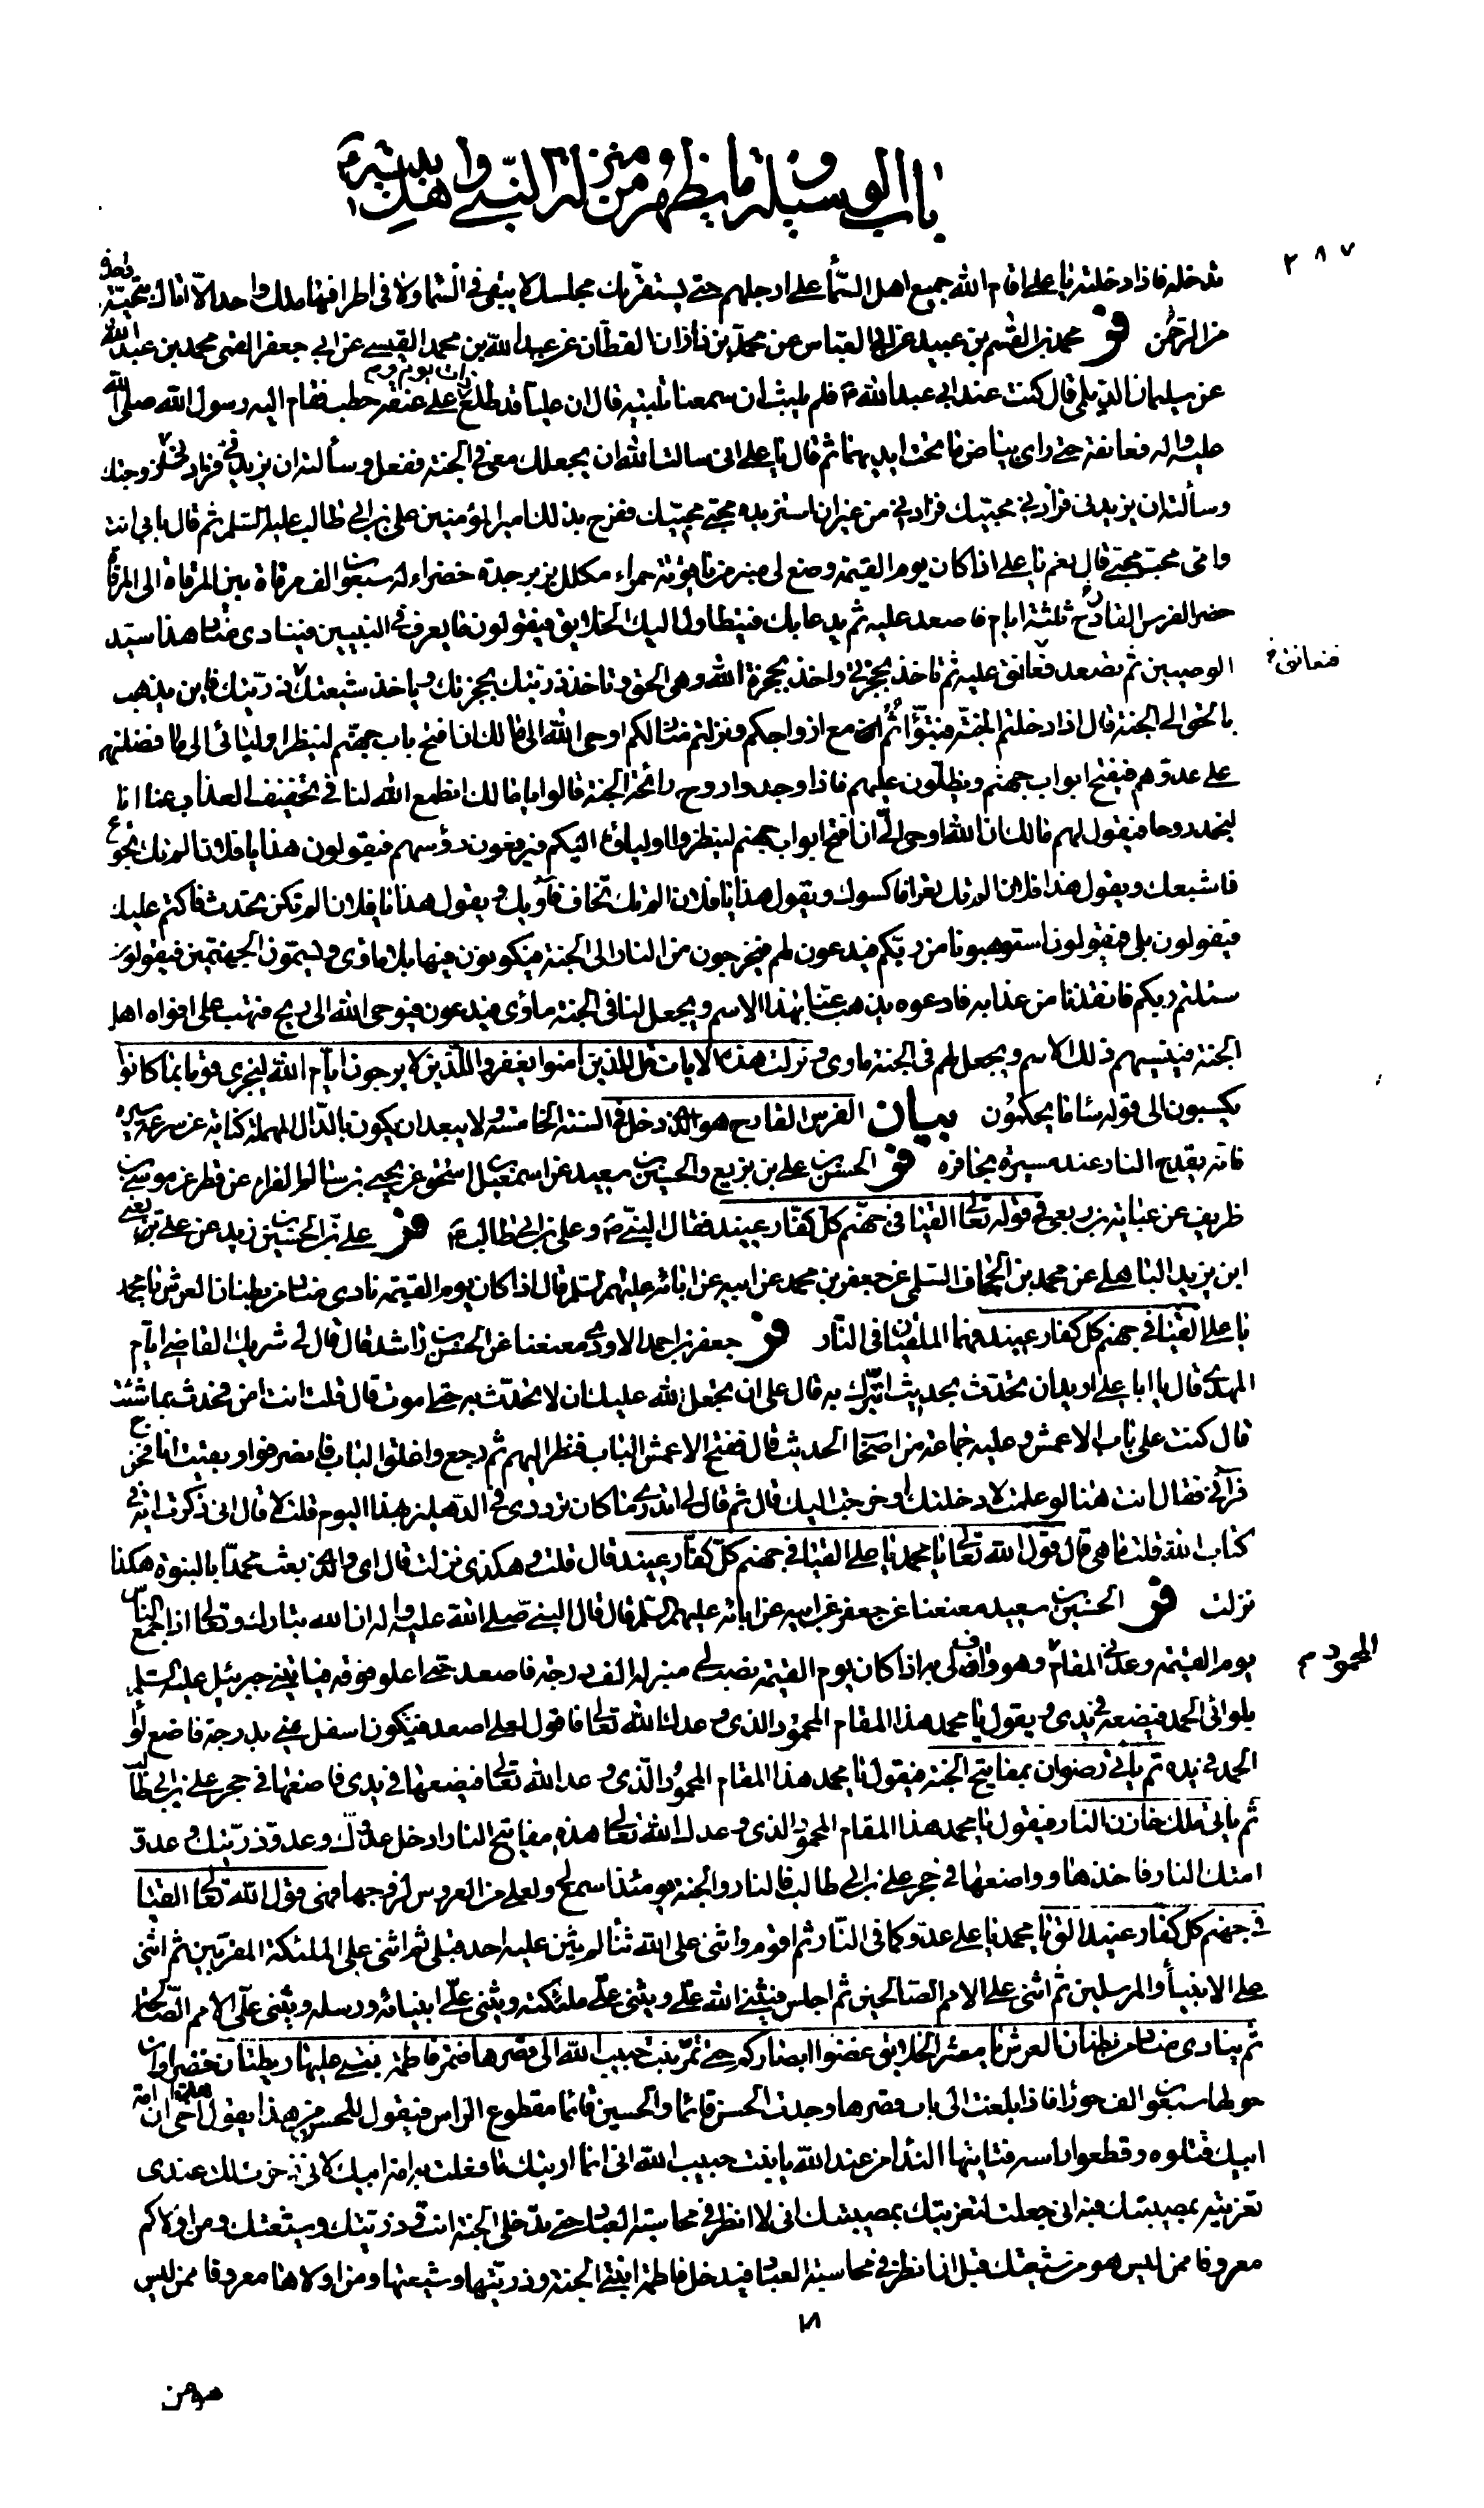 باب الوسيلة وما يظهر من منزلة النبي واهل بيته ع
٢٨٧
تدخله فاذا دخلته يا علي اقام الله جميع اهل السماء على ارجلهم حتى يستقر بك مجلسك لا يبقى في السماء ولا في اطرافها ملك واحد الا اتاك بتحية
من الرحمن فر محمد بن القسم بن عبيد عن ابي العباس عن محمد بن ذاذان القطان عن عبد الله بن محمد القيسي عن ابي جعفر القمي محمد بن عبد الله
عن سليمان الديلمي قال كنت عند ابي عبد الله ع فلم يلبث ان سمعنا تلبيته قال ان عليا قد طلع ذات يوم وم على عنقه حطب فقام اليه رسول الله صلى الله
عليه واله فعانقه حتى راى بياض ما تحت ايديهما ثم قال يا علي اني سالت الله ان يجعلك معي في الجنة ففعل وسألته ان يزيدني فزادني زوجتك
وسألته ان يزيدني فزادني محبيك فزادني من غير ان استزيده محبي محبيك ففرح بذلك امير المؤمنين علي بن ابي طالب عليه السلم ثم قال بابي انت
وامي محب محبي قال نعم يا علي اذا كان يوم القيمة وضع لي منبر من ياقوتة حمراء مكلل بزبرجدة خضراء له سبعون الف مرقاة بين المرقاة الى المرقاة
حضر الفرس القارح ثلثة ايام فاصعد عليه ثم يدعا بك فيتطاول اليك الخلايق فيقولون ما يعرف في النبيين فينادي مناد هذا سيد
الوصيين ثم تصعد فعانق عليه ثم تاخذ بحجزتي واخذ بحجزة الله وهي الحق وتاخذ ذريتك بحجزتك وياخذ شيعتك بحجزة ذريتك فاين يذهب
فنعانق
بالحق الى الجنة قال اذا دخلتم الجنة فتبوأتم مع ازواجكم ونزلتم منازلكم اوحى الله الى مالك ان افتح باب جهنم لينظر اوليائي الى ما فضلتهم
على عدوهم فيفتح ابواب جهنم ويظلون عليهم فاذا وجدوا روح رائحة الجنة قالوا يا مالك انطمع الله لنا في تخفيف العذاب عنا انا
لنجد روحا فيقول لهم مالك ان الله اوحى الي ان افتح ابواب جهنم لينظر اولياؤه اليكم فيرفعون رؤسهم فيقولون هذا يا فلان الم تك تجوع
فاشبعك ويقول هذا فلان الم تك تعرا فاكسوك ويقول هذا يا فلان الم تك تخاف فآويك ويقول هذا يا فلان الم تكن تحدث فاكتم عليك
فيقولون بلى فيقولون استوهبونا من ربكم فيدعون لهم فيخرجون من النار الى الجنة فيكونون فيها بلا ماوى ويسمون الجهنميين فيقولون
سئلتم ربكم فانقذنا من عذابه فادعوه يذهب عنا بهذا الاسم ويجعل لنا في الجنة ماؤى فيدعون فيوحي الله الى ريح فتهب على افواه اهل
الجنة فينسيهم ذلك الاسم ويجعل لهم في الجنة ماوى ونزلت هذه الايات قل للذين امنوا يغفروا للذين لا يرجون ايام الله ليجزي قوما بما كانوا
يكسبون الى قوله ساء ما يحكمون بيان الفرس القارح هو الذي دخل في السنة الخامسة ولا يبعد ان يكون بالدال المهملة كناية عن سرعة سيره
فانه يقدح النار عند مسيره بحافره فر الحسن بن علي بن بزيع والحسين بن سعيد عن اسمعيل بن اسحق عن يحيى بن سالم الفراء عن قطر عن موسى بن
ظريف عن عباية بن ربعي في قوله تعالى القيا في جهنم كل كفار عنيد فقال النبي ص وعلي بن ابي طالب ع فر علي بن الحسين بن زيد عن علي بن يعني
ابن يزيد الباهلي عن محمد بن الحجاف السلمي عن جعفر بن محمد عن ابيه عن ابائه عليهم السلم قال اذا كان يوم القيمة نادى مناد من بطنان العرش يا محمد
يا علي القيا في جهنم كل كفار عنيد فهما الملقيان في النار فر جعفر بن احمد الاودي معنعنا عن الحسن بن راشد قال قال لي شريك القاضي ايام
المهدي قال يا ابا علي اريد ان تحدث بحديث اتبرك به قال على ان تجعل الله عليك ان لا تحدث به حتى اموت قال قلت انت امن فحدث بما شئت
قال كنت على باب الاعمش وعليه جماعة من اصحاب الحديث قال ففتح الاعمش الباب فنظر اليهم ثم رجع واغلق الباب فانصرفوا وبقيت انا فخرج
فرآني فقال انت هنا لو علمت لادخلتك او خرجت اليك قال ثم قال لي اتدري ما كان ترددي في الدهليز هذا اليوم قلت لا قال اني ذكرت اية في
كتاب الله قلت ما هي قال قول الله تعالى يا محمد يا علي القيا في جهنم كل كفار عنيد قال قلت وهكذى نزلت قال اي والذي بعث محمدا بالنبوة هكذا
نزلت فر الحسين بن سعيد معنعنا عن جعفر عن ابيه عن ابائه عليهم السلم قال قال النبي صلى الله عليه واله ان الله تبارك وتعالى اذا جمع الناس
يوم القيمة وعدني المقام وهو واف لي به اذا كان يوم القيمة نصب لي منبر له الف درجة فاصعد حتى اعلو فوقه فياتيني جبرئيل عليه السلم
المحمود م
بلواء الحمد فيضعه في يدي ويقول يا محمد هذا المقام المحمود الذي وعدك الله تعالى فاقول لعلي اصعد فيكون اسفل مني بدرجة فاضع لواء
الحمد في يده ثم ياتي رضوان بمفاتيح الجنة فيقول يا محمد هذا المقام المحمود الذي وعدك الله تعالى فيضعها في يدي فاضعها في حجر علي بن ابي طالب
ثم ياتي ملك خازن النار فيقول يا محمد هذا المقام المحمود الذي وعدك الله تعالى هذه مفاتيح النار ادخل عدوك وعدو ذريتك وعدو
امتك النار فاخذها واضعها في حجر علي بن ابي طالب فالنار والجنة يومئذ اسمع لي ولعلي من العروس لزوجها فهي قول الله تعالى القيا
في جهنم كل كفار عنيد الق يا محمد يا علي عدوكما في النار ثم اقوم واثني على الله ثناء لم يثن عليه احد قبلي ثم اثني على الملئكة المقربين ثم اثني
على الانبياء والمرسلين ثم اثني على الامم الصالحين ثم اجلس فيثني الله علي ويثني علي ملئكته ويثني علي انبيائه ورسله ويثني علي الامم الصالحة
ثم ينادي مناد من بطنان العرش يا معشر الخلايق غضوا ابصاركم حتى تمر بنت حبيب الله الى قصرها فتمر فاطمة بنتي عليها ريطتان خضراوان
حولها سبعون الف حوراء فاذا بلغت الى باب قصرها وجدت الحسن قائما والحسين قائما مقطوع الراس فيقول للحسن من هذا يقول هذا اخي ان امة
ابيك قتلوه وقطعوا راسه فتاتيها النداء من عند الله يا بنت حبيب الله اني انما اريتك ما فعلت به امة ابيك لاني ذخرت لك عندي
تعزية بمصيبتك فيه اني جعلت لتعزيتك بمصيبتك اني لا انظر في محاسبة العباد حتى تدخلي الجنة انت وذريتك وشيعتك ومن اولاكم
معروفا ممن ليس هو من شيعتك قبل ان انظر في محاسبة العباد فيدخل فاطمة ابنتي الجنة وذريتها وشيعتها ومن اولاها معروفا ممن ليس